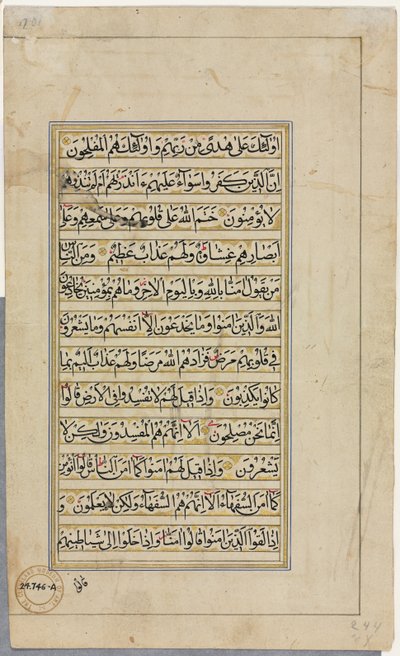 اولٰٓئك على هدًى من ربهم واولٰٓئك هم المفلحون
ان الذين كفروا سواء عليهم ءانذرتهم ام لم تنذرهم
لا يؤمنون ختم الله على قلوبهم وعلى سمعهم وعلى
ابصارهم غشاوة ولهم عذاب عظيم ومن الناس
من يقول امنا بالله وباليوم الاخر وما هم بمؤمنين يخادعون
الله والذين امنوا وما يخدعون الا انفسهم وما يشعرون
في قلوبهم مرض فزادهم الله مرضا ولهم عذاب اليم بما
كانوا يكذبون واذا قيل لهم لا تفسدوا في الارض قالوا
انما نحن مصلحون الا انهم هم المفسدون ولكن لا
يشعرون واذا قيل لهم امنوا كما امن الناس قالوا انؤمن
كما امن السفهاء الا انهم هم السفهاء ولكن لا يعلمون و
اذا لقوا الذين امنوا قالوا امنا واذا خلوا الى شياطينهم
قالوا
24.746-A
244